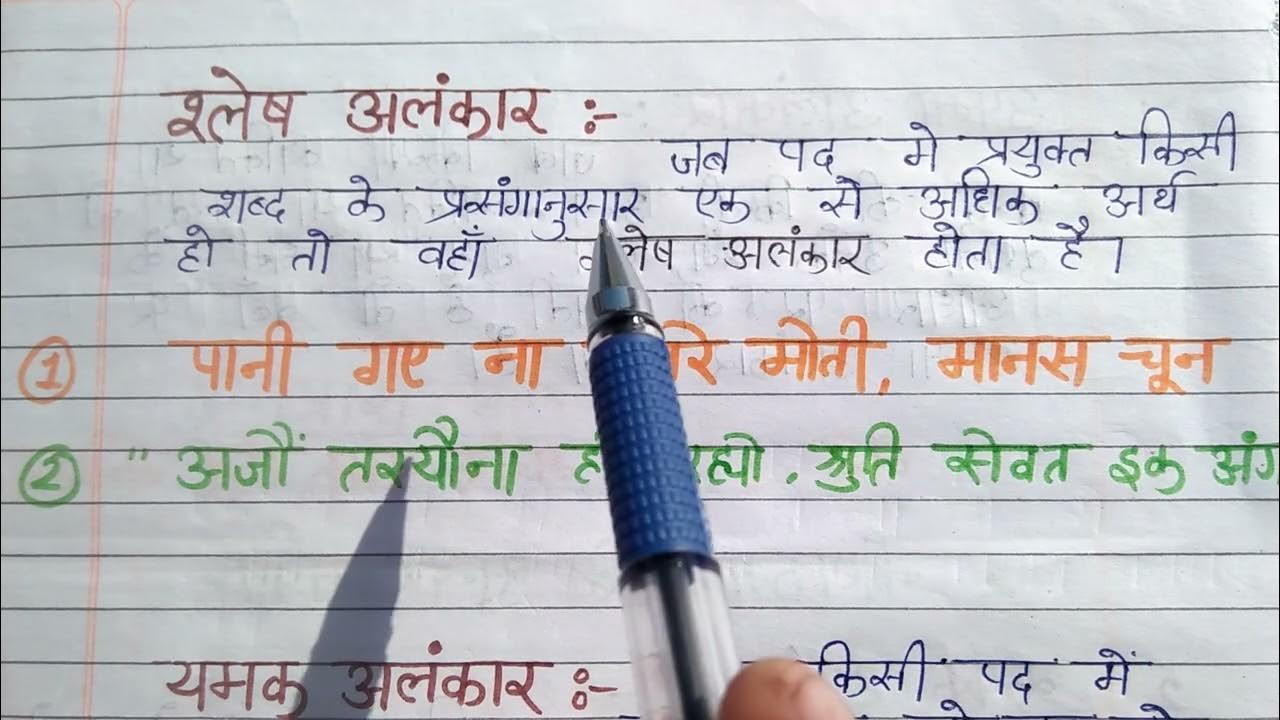 श्लेष अलंकार :-
जब पद मे प्रयुक्त किसी
शब्द के प्रसंगानुसार एक से अधिक अर्थ
हो तो वहाँ श्लेष अलंकार होता है।
① पानी गए ना मोती, मानस चून
② " अजौं तरयौना रह्यो . श्रुति सेवत इक अंग
यमक अलंकार :- किसी पद में